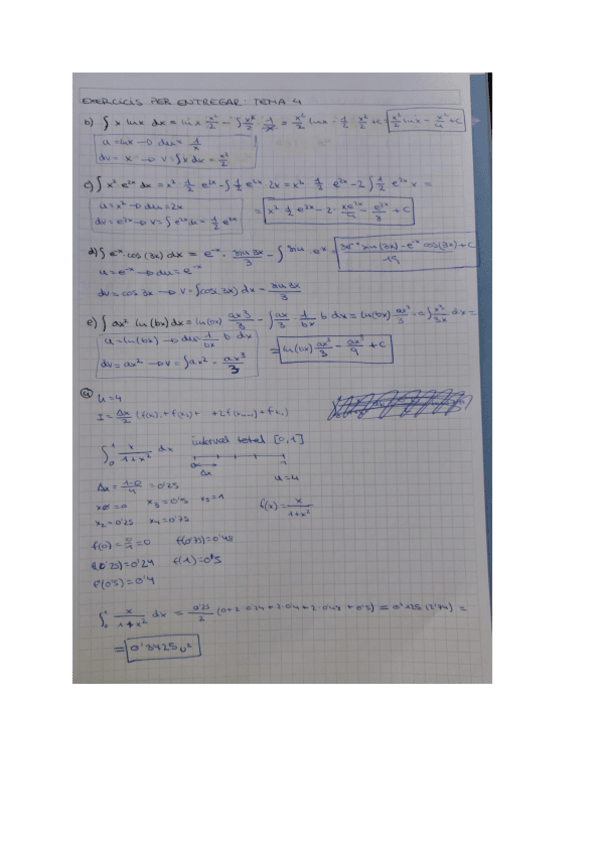 EXERCICIS PER ENTREGAR: TEMA 4
b) ∫ x lnx dx = lnx x²/2 - ∫ x²/2 · 1/x = x²/2 lnx - 1/2 · x²/2 + c = x²/2 lnx - x²/4 + c
u = lnx → du = 1/x
dv = x → v = ∫x dx = x²/2
c) ∫ x² e²ˣ dx = x² 1/2 e²ˣ - ∫ 1/2 e²ˣ 2x = x² · 1/2 · e²ˣ - 2 ∫ 1/2 e²ˣ x =
u = x² → du = 2x
dv = e²ˣ → v = ∫ e²ˣ dx = 1/2 e²ˣ
= x² · 1/2 e²ˣ - 2 · - + c
d) ∫ e⁻ˣ cos (3x) dx = e⁻ˣ · sin 3x/3 - ∫ sin · e⁻ˣ = sin (3x) - e⁻ˣ cos(3x) + c
u = e⁻ˣ → du = e⁻ˣ
dv = cos 3x → v = ∫cos(3x) dx = sin 3x/3
e) ∫ ax² ln (bx) dx = ln(bx) ax³/3 - ∫ ax/3 · 1/bx b dx = ln(bx) ax³/3 - a ∫ x³/3x dx =
u = ln(bx) → du = 1/bx b dx
dv = ax² → v = ∫ ax² = ax³/3
= ln(bx) ax³/3 - ax³/9 + c
④ n = 4
I = Δx/2 (f(x₁) + f(x₂) + + 2f(xₙ₋₁) + f(xₙ))
∫₀¹ x/1+x² dx interval total [0,1]
Δx
Δx = 1-0/4 = 0'25 n = 4
x₀ = 0 x₃ = 0'5 x₅ = 1 f(x) = x/1+x²
x₂ = 0'25 x₄ = 0'75
f(0) = 0/1 = 0 f(0'75) = 0'48
f(0'25) = 0'24 f(1) = 0'5
f(0'5) = 0'4
∫₀¹ x/1+x² dx = 0'25/2 (0 + 2 · 0'24 + 2 · 0'4 + 2 · 0'48 + 0'5) = 0'125 (2'74) =
= 0'3425 u²